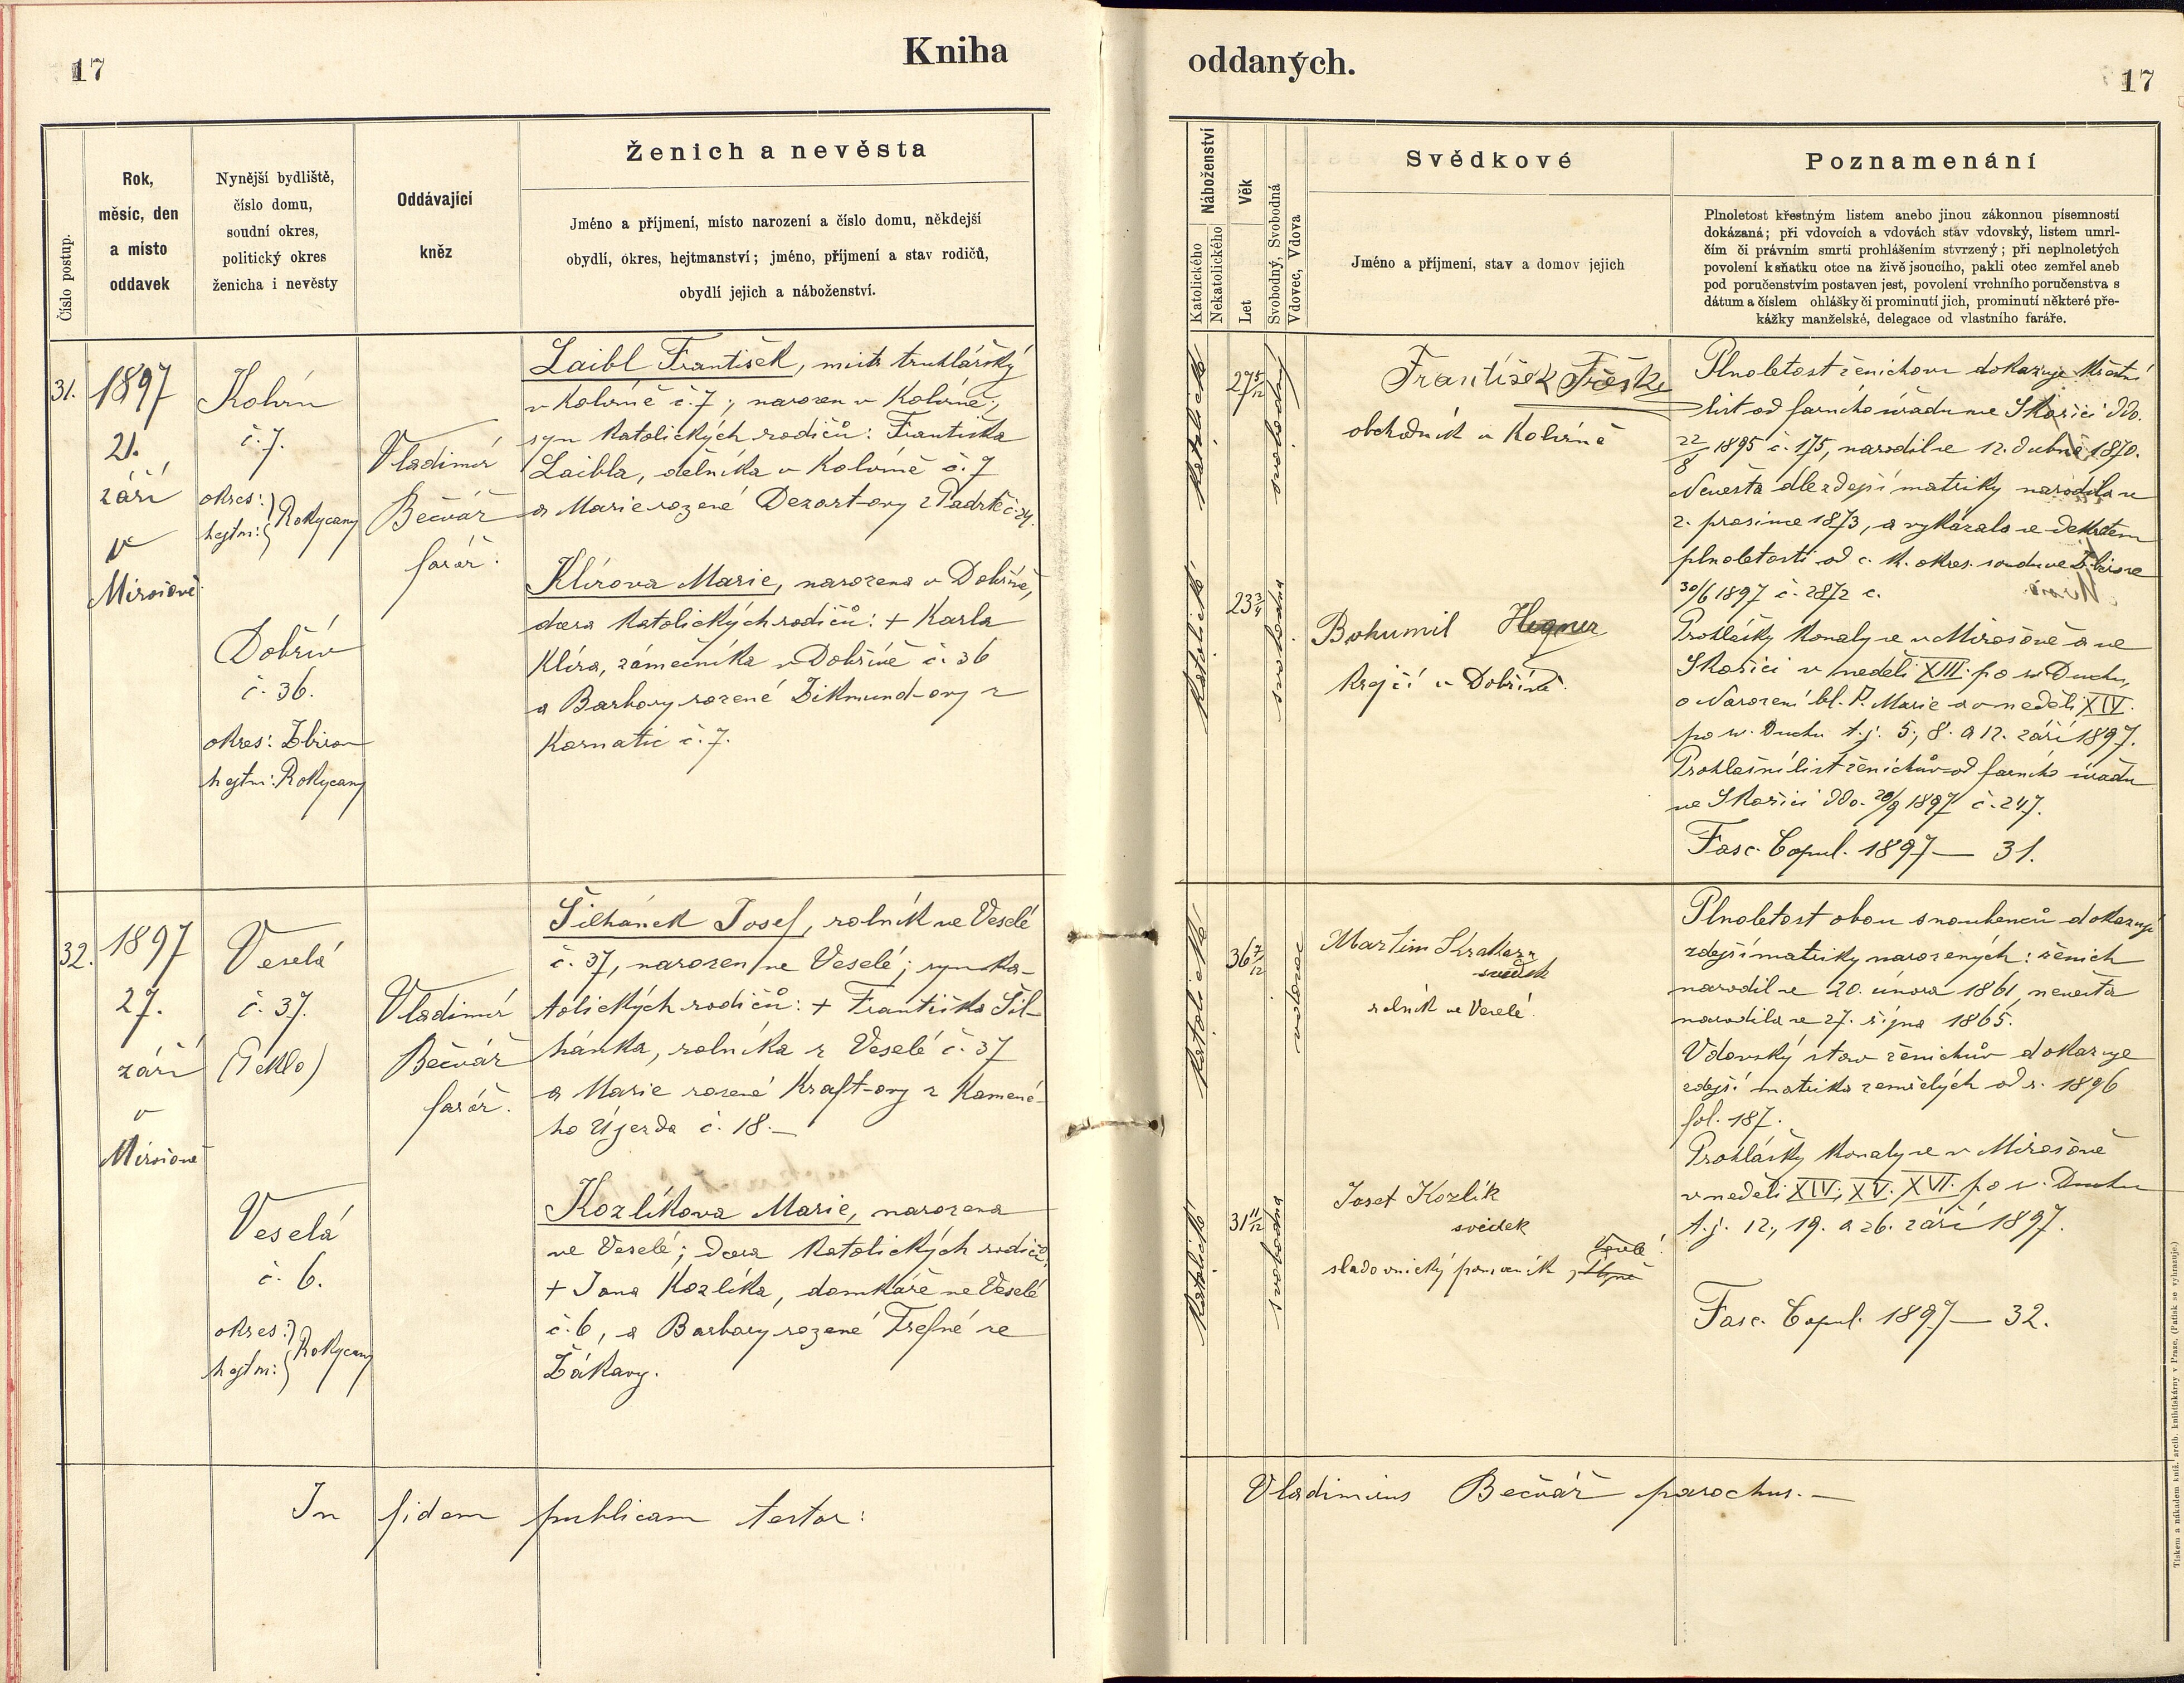 17
Kniha
Číslo postup.
Rok,
měsíc, den
a místo
oddavek
Nynější bydliště,
číslo domu,
soudní okres,
politický okres
ženicha i nevěsty
Oddávající
kněz
Ženich a nevěsta
Jméno a příjmení, místo narození a číslo domu, někdejší
obydlí, okres, hejtmanství; jméno, příjmení a stav rodičů,
obydlí jejich a náboženství.
31.
1897
21.
září
v
Mirošově.
Kolvín
č. 7.
okres:
hejtm: Rokycany
Dobřív
č. 36.
okres: Zbirov
hejtm: Rokycany
Vladimír
Bečvář
farář.
Laibl František, mistr truhlářský
v Kolvíně č. 7; narozen v Kolvíně;
syn katolických rodičů: Františka
Laibla, dělníka v Kolvíně č. 7
a Marie rozené Dezort-ovy z Padrtě č. 24.
Klírova Marie, narozena v Dobřívě,
dcera katolických rodičů: + Karla
Klíra, zámečníka v Dobřívě č. 36
a Barbory rozené Zikmund-ovy z
Kornatic č. 7.
32.
1897
27.
září
v
Mirošově
Veselá
č. 37.
(Peklo)
Veselá
č. 6.
okres:
hejtm: Rokycany
Vladimír
Bečvář
farář.
Šilhánek Josef, rolník ve Veselé
č. 37, narozen ve Veselé; syn ka-
tolických rodičů: + Františka Šil-
hánka, rolníka z Veselé č. 37
a Marie rozené Kraft-ovy z Kamené-
ho Újezda č. 18.—
Kozlíkova Marie, narozena
ve Veselé; dcera katolických rodičů:
+ Jana Kozlíka, domkáře ve Veselé
č. 6, a Barbory rozené Trefné ze
Žákavy.
In fidem publicam testor:
oddaných.
17
Náboženství
Katolického
Nekatolického
Věk
Let
Svobodný, Svobodná
Vdovec, Vdova
Svědkové
Jméno a příjmení, stav a domov jejich
Poznamenání
Plnoletost křestným listem anebo jinou zákonnou písemností
dokázaná; při vdovcích a vdovách stav vdovský, listem umrl-
čím či právním smrti prohlášením stvrzený; při neplnoletých
povolení k sňatku otce na živě jsoucího, pakli otec zemřel aneb
pod poručenstvím postaven jest, povolení vrchního poručenstva s
dátum a číslem ohlášky či prominutí jich, prominutí některé pře-
kážky manželské, delegace od vlastního faráře.
katolické
27 5/12
svobodný
František
obchodník v Kolvíně
katolické
23 3/4
svobodna
Bohumil Hegner
krejčí v Dobřívě.
Plnoletost ženichovu dokazuje křestní
list od farního úřadu ve Skořici ddo.
22/8 1895 č. 175, narodil se 12. dubna 1870.
Nevěsta dle zdejší matriky narodila se
2. prosince 1873, a vykázala se dekretem
plnoletosti od c. k. okres. soudu ve Zbirově
30/6 1897 č. 2872 c.
Prohlášky konaly se v Mirošově a ve
Skořici v neděli XIII. po sv. Duchu,
o Narození bl. P. Marie a v neděli XIV.
po sv. Duchu t. j. 5., 8. a 12. září 1897.
Prohlašní list ženichův od farního úřadu
ve Skořici ddo. 20/9 1897 č. 247.
Fasc. Copul. 1897 — 31.
katolické
36 7/12
vdovec
Martin
svědek
rolník ve Veselé.
katolické
31 11/12
svobodna
Josef Kozlík
svědek
sladovnický pomocník z
Veselé
Plnoletost obou snoubenců dokazují
zdejší matriky narozených: ženich
narodil se 20. února 1861, nevěsta
narodila se 27. října 1865.
Vdovský stav ženichův dokazuje
zdejší matrika zemřelých od r. 1896
fol. 187.
Prohlášky konaly se v Mirošově
v neděli XIV., XV., XVI. po sv. Duchu
t. j. 12., 19. a 26. září 1897.
Fasc. Copul. 1897 — 32.
Vladimirus Bečvář parochus.—